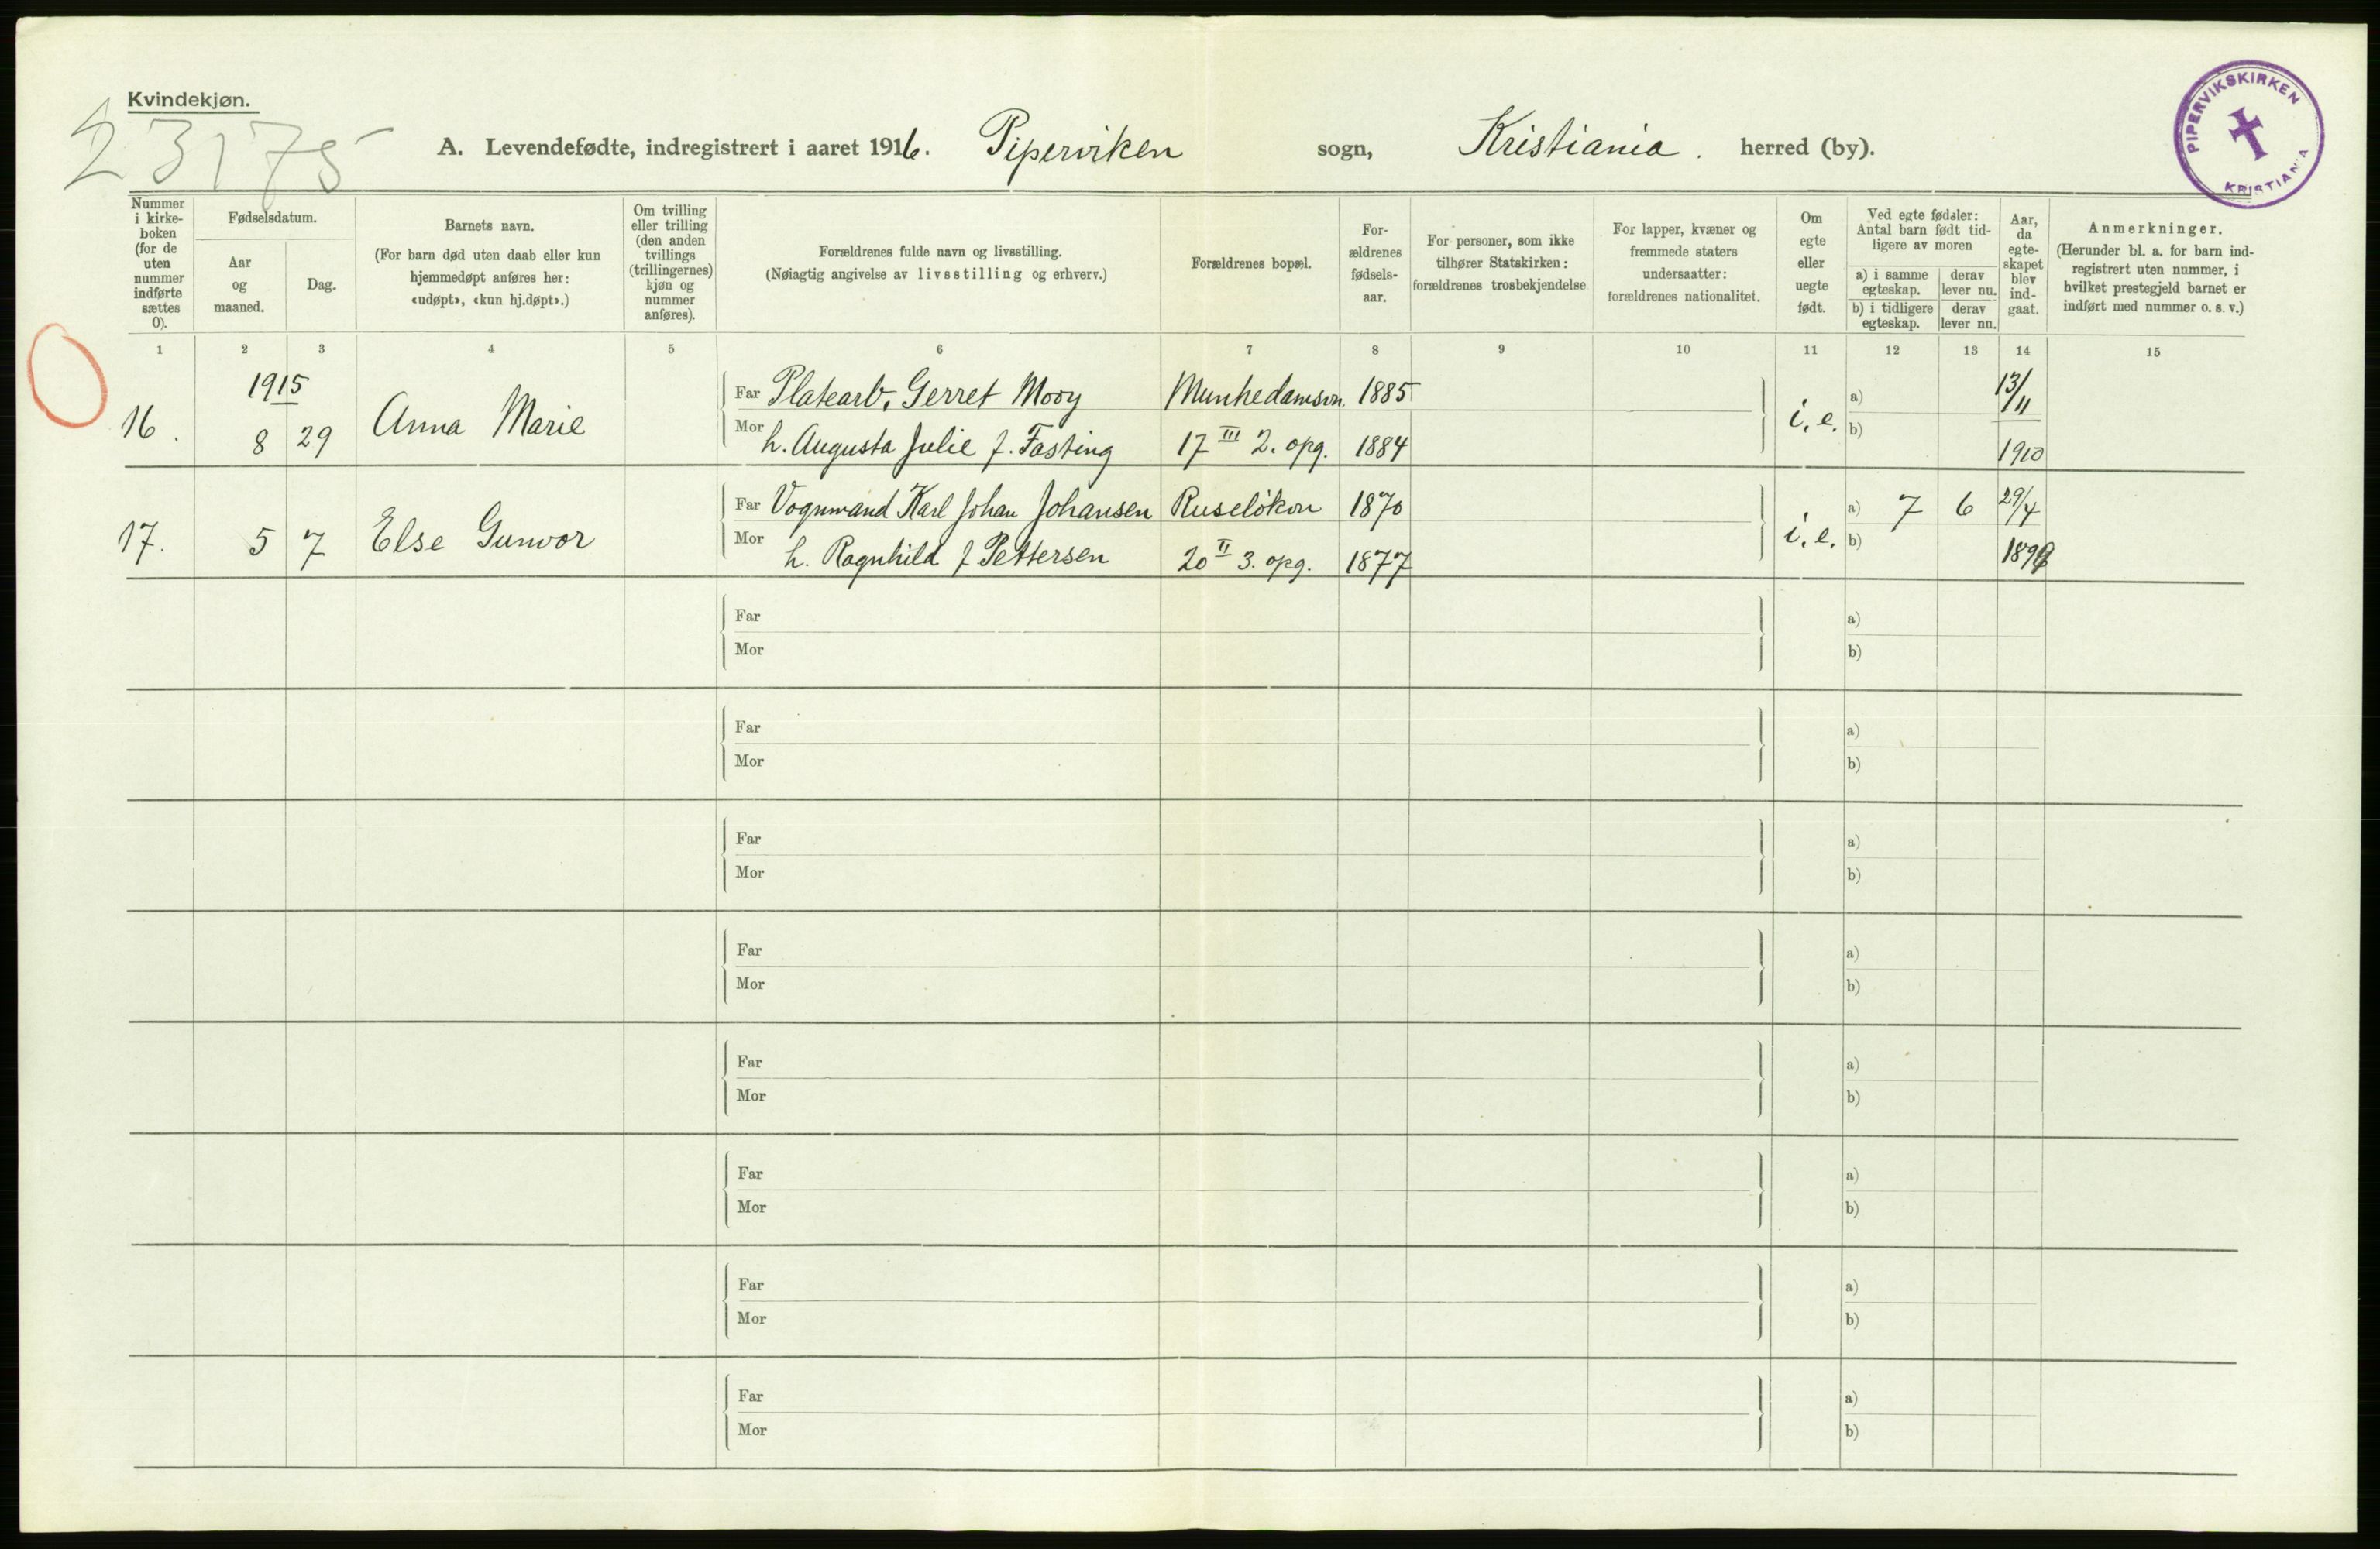 Kvindekjøn.
23175
A. Levendefødte, indregistrert i aaret 1916. Piperviken sogn, Kristiania. herred (by).
PIPERVIKSKIRKEN
KRISTIANIA
Nummer i kirke-boken (for de uten nummer indførte sættes 0).
Fødselsdatum.
Aar og maaned.
Dag.
Barnets navn.
(For barn død uten daab eller kun
hjemmedøpt anføres her:
«udøpt», «kun hj.døpt».)
Om tvilling
eller trilling
(den anden
tvillings
(trillingernes)
kjøn og
nummer
anføres).
Forældrenes fulde navn og livsstilling.
(Nøiagtig angivelse av livsstilling og erhverv.)
Forældrenes bopæl.
For-
ældrenes
fødsels-
aar.
For personer, som ikke
tilhører Statskirken:
forældrenes trosbekjendelse
For lapper, kvæner og
fremmede staters
undersaatter:
forældrenes nationalitet.
Om
egte
eller
uegte
født.
Ved egte fødsler:
Antal barn født tid-
ligere av moren
a) i samme
egteskap.
derav
lever nu.
b) i tidligere
egteskap.
derav
lever nu.
Aar,
da
egte-
skapet
blev
ind-
gaat.
Anmerkninger.
(Herunder bl. a. for barn ind-
registrert uten nummer, i
hvilket prestegjeld barnet er
indført med nummer o. s. v.)
1 2 3 4 5 6 7 8 9 10 11 12 13 14 15
1915
16. 8 29 Anna Marie
Far Platearb. Gerret Mooy Munkedamsvn. 1885
Mor h. Augusta Julie f. Fasting 17 III 2. opg. 1884
i. e. a) b) 13/11 1910
17. 5 7 Else Gunvor
Far Vognmand Karl Johan Johansen Ruseløkvn 1870
Mor h. Ragnhild f Pettersen 20 II 3. opg. 1877
i. e. a) 7 6 29/4
b) 1899
Far a)
Mor b)
Far a)
Mor b)
Far a)
Mor b)
Far a)
Mor b)
Far a)
Mor b)
Far a)
Mor b)
Far a)
Mor b)
Far a)
Mor b)